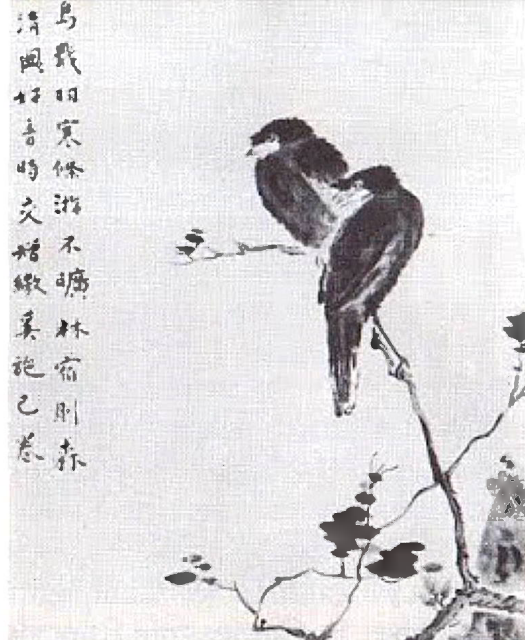 鳥戢羽寒條游不曠林宿則森
清興好音時交矰繳奚施已卷